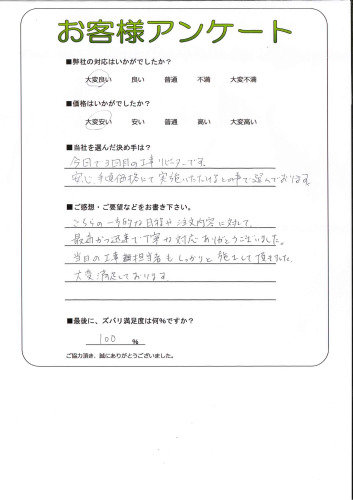 お客様アンケート
■弊社の対応はいかがでしたか？
大変良い 良い 普通 不満 大変不満
■価格はいかがでしたか？
大変安い 安い 普通 高い 大変高い
■当社を選んだ決め手は？
今回で3回目の工事リピーターです。
安心、お手頃価格にて実施いただけるとの事で選んでおります。
■ご感想・ご要望などをお書き下さい。
こちらの一方的な日程や注文内容に対して、
最適かつ迅速で丁寧な対応ありがとうございました。
当日の工事担当者もしっかりと施工して頂きました。
大変満足しております。
■最後に、ズバリ満足度は何%ですか？
100 %
ご協力頂き、誠にありがとうございました。